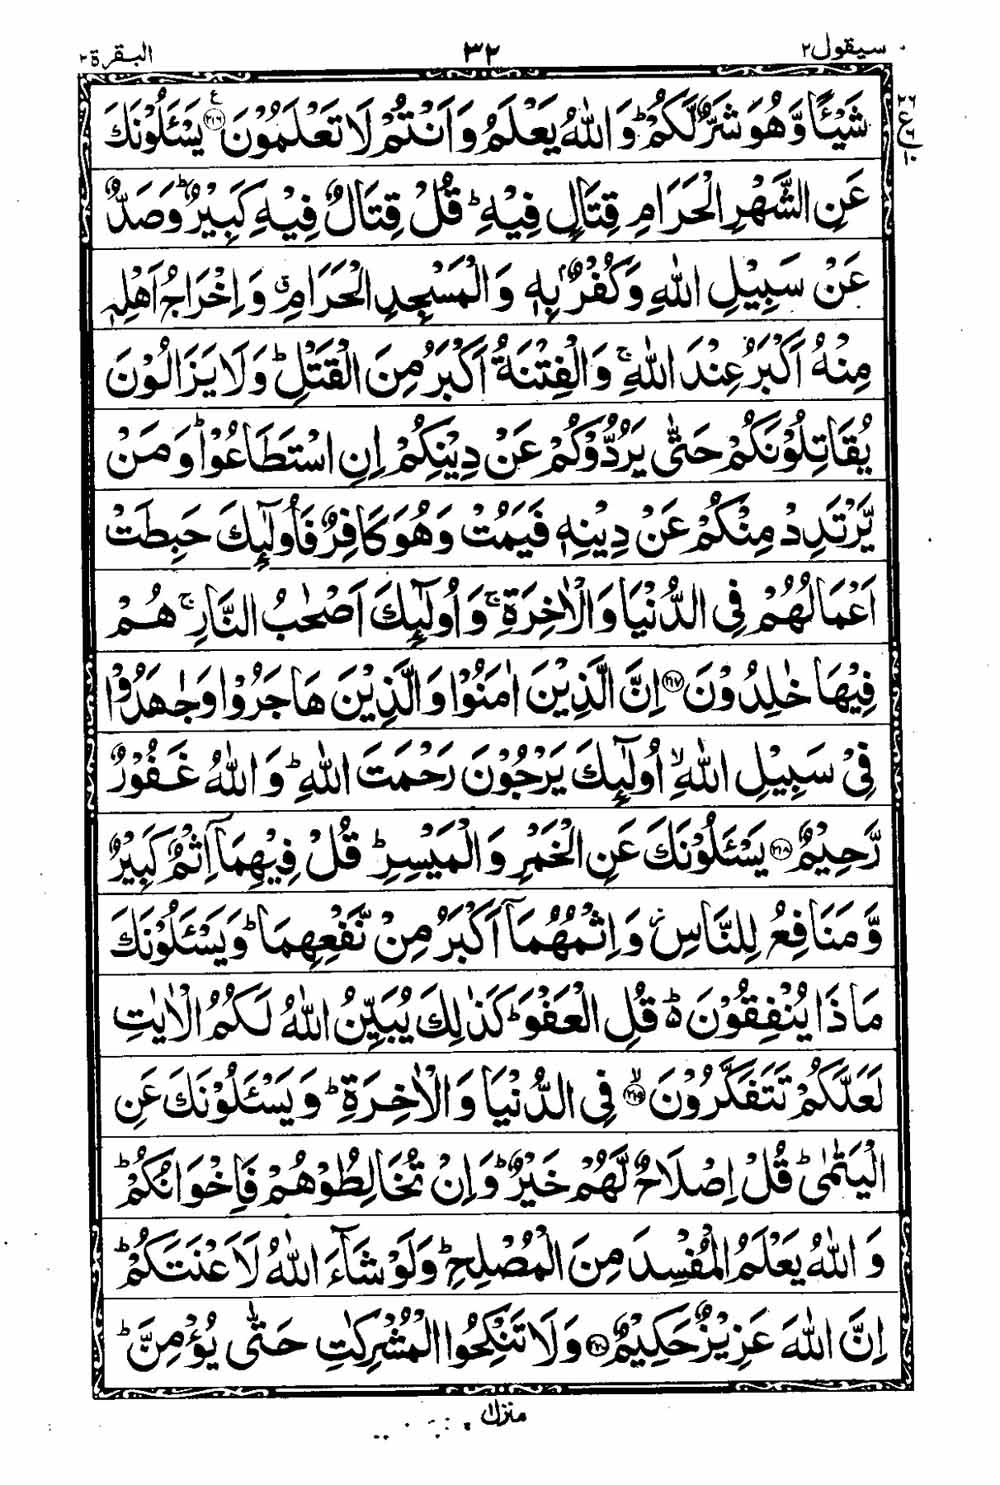 سیقول ٢ ٣٢ البقرة ٢
شَيْـًٔا وَّهُوَ شَرٌّ لَّكُمْ ؕ وَاللّٰهُ يَعْلَمُ وَاَنْتُمْ لَا تَعْلَمُوْنَ ﴿٢١٦﴾ ع يَسْـَٔلُوْنَكَ
٢٦ ع ٦ ١٠
عَنِ الشَّهْرِ الْحَرَامِ قِتَالٍ فِيْهِ ؕ قُلْ قِتَالٌ فِيْهِ كَبِيْرٌ ؕ وَصَدٌّ
عَنْ سَبِيْلِ اللّٰهِ وَكُفْرٌۢ بِهٖ وَالْمَسْجِدِ الْحَرَامِ ۗ وَاِخْرَاجُ اَهْلِهٖ
مِنْهُ اَكْبَرُ عِنْدَ اللّٰهِ ۚ وَالْفِتْنَةُ اَكْبَرُ مِنَ الْقَتْلِ ؕ وَلَا يَزَالُوْنَ
يُقَاتِلُوْنَكُمْ حَتّٰى يَرُدُّوْكُمْ عَنْ دِيْنِكُمْ اِنِ اسْتَطَاعُوْا ؕ وَمَنْ
يَّرْتَدِدْ مِنْكُمْ عَنْ دِيْنِهٖ فَيَمُتْ وَهُوَ كَافِرٌ فَاُولٰٓئِكَ حَبِطَتْ
اَعْمَالُهُمْ فِى الدُّنْيَا وَالْاٰخِرَةِ ۚ وَاُولٰٓئِكَ اَصْحٰبُ النَّارِ ۚ هُمْ
فِيْهَا خٰلِدُوْنَ ﴿٢١٧﴾ اِنَّ الَّذِيْنَ اٰمَنُوْا وَالَّذِيْنَ هَاجَرُوْا وَجٰهَدُوْا
فِىْ سَبِيْلِ اللّٰهِ ۙ اُولٰٓئِكَ يَرْجُوْنَ رَحْمَتَ اللّٰهِ ؕ وَاللّٰهُ غَفُوْرٌ
رَّحِيْمٌ ﴿٢١٨﴾ يَسْـَٔلُوْنَكَ عَنِ الْخَمْرِ وَالْمَيْسِرِ ؕ قُلْ فِيْهِمَاۤ اِثْمٌ كَبِيْرٌ
وَّمَنَافِعُ لِلنَّاسِ ۫ وَاِثْمُهُمَاۤ اَكْبَرُ مِنْ نَّفْعِهِمَا ؕ وَيَسْـَٔلُوْنَكَ
مَاذَا يُنْفِقُوْنَ ۬ؕ قُلِ الْعَفْوَ ؕ كَذٰلِكَ يُبَيِّنُ اللّٰهُ لَكُمُ الْاٰيٰتِ
لَعَلَّكُمْ تَتَفَكَّرُوْنَ ۙ﴿٢١٩﴾ فِى الدُّنْيَا وَالْاٰخِرَةِ ؕ وَيَسْـَٔلُوْنَكَ عَنِ
الْيَتٰمٰى ؕ قُلْ اِصْلَاحٌ لَّهُمْ خَيْرٌ ؕ وَاِنْ تُخَالِطُوْهُمْ فَاِخْوَانُكُمْ ؕ
وَاللّٰهُ يَعْلَمُ الْمُفْسِدَ مِنَ الْمُصْلِحِ ؕ وَلَوْ شَآءَ اللّٰهُ لَاَعْنَتَكُمْ ؕ
اِنَّ اللّٰهَ عَزِيْزٌ حَكِيْمٌ ﴿٢٢٠﴾ وَلَا تَنْكِحُوا الْمُشْرِكٰتِ حَتّٰى يُؤْمِنَّ ؕ
منزل ١